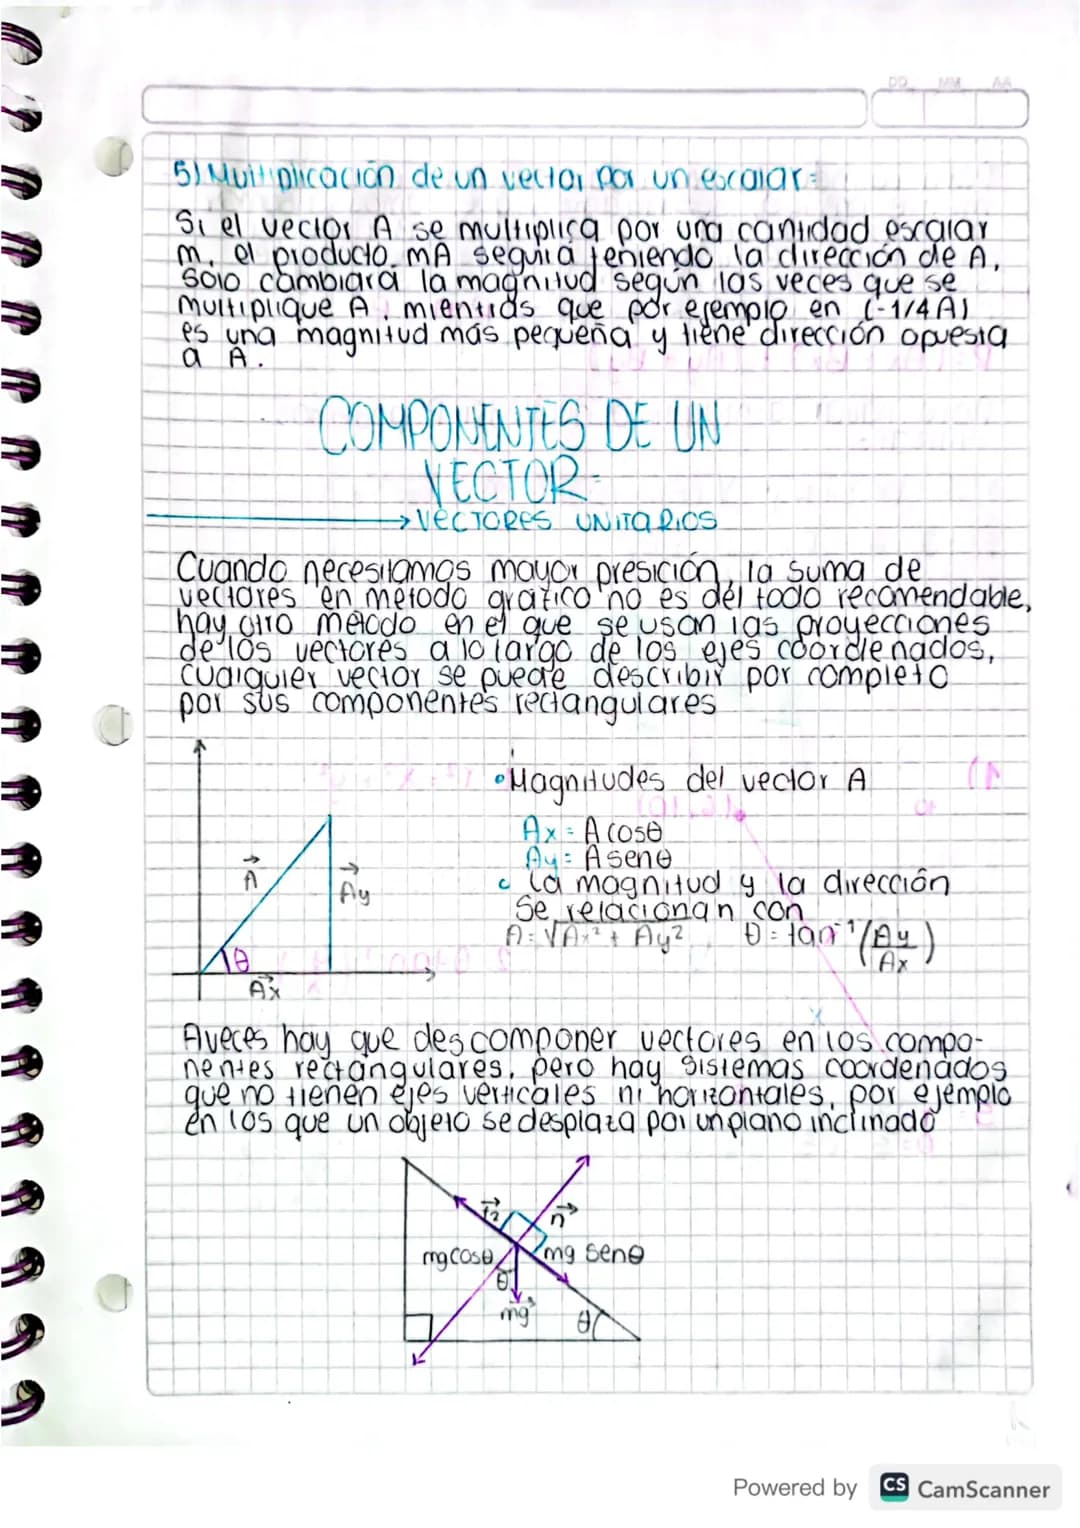 DD MM AA
5) Multiplicación de un vector por un escalar:
Si el vector A se multiplica por una cantidad escalar
m, el producto mA seguirá teniendo la dirección de A,
solo cambiará la magnitud según las veces que se
multiplique A, mientras que por ejemplo en (-1/4A)
es una magnitud más pequeña y tiene dirección opuesta
a A.
COMPONENTES DE UN
VECTOR-
→VECTORES UNITARIOS
Cuando necesitamos mayor presición, la suma de
vectores en metodo gráfico no es del todo recomendable,
hay otro método en el que se usan las proyecciones
de los vectores a lo largo de los ejes coordenados,
cualquier vector se puede describir por completo
por sus componentes rectangulares
• Magnitudes del vector A
Ax = A cosθ
Ay = A senθ
• La magnitud y la dirección
se relacionan con
A = √Ax² + Ay² θ = tan⁻¹(Ay/Ax)
A
Ay
θ
Ax
Aveces hay que descomponer vectores en los compo-
nentes rectángulares, pero hay sistemas coordenados
que no tienen ejes verticales ni horizontales, por ejemplo
en los que un objeto se desplaza por un plano inclinado
n
mg cosθ
mg senθ
θ
mg
θ
Powered by CS CamScanner